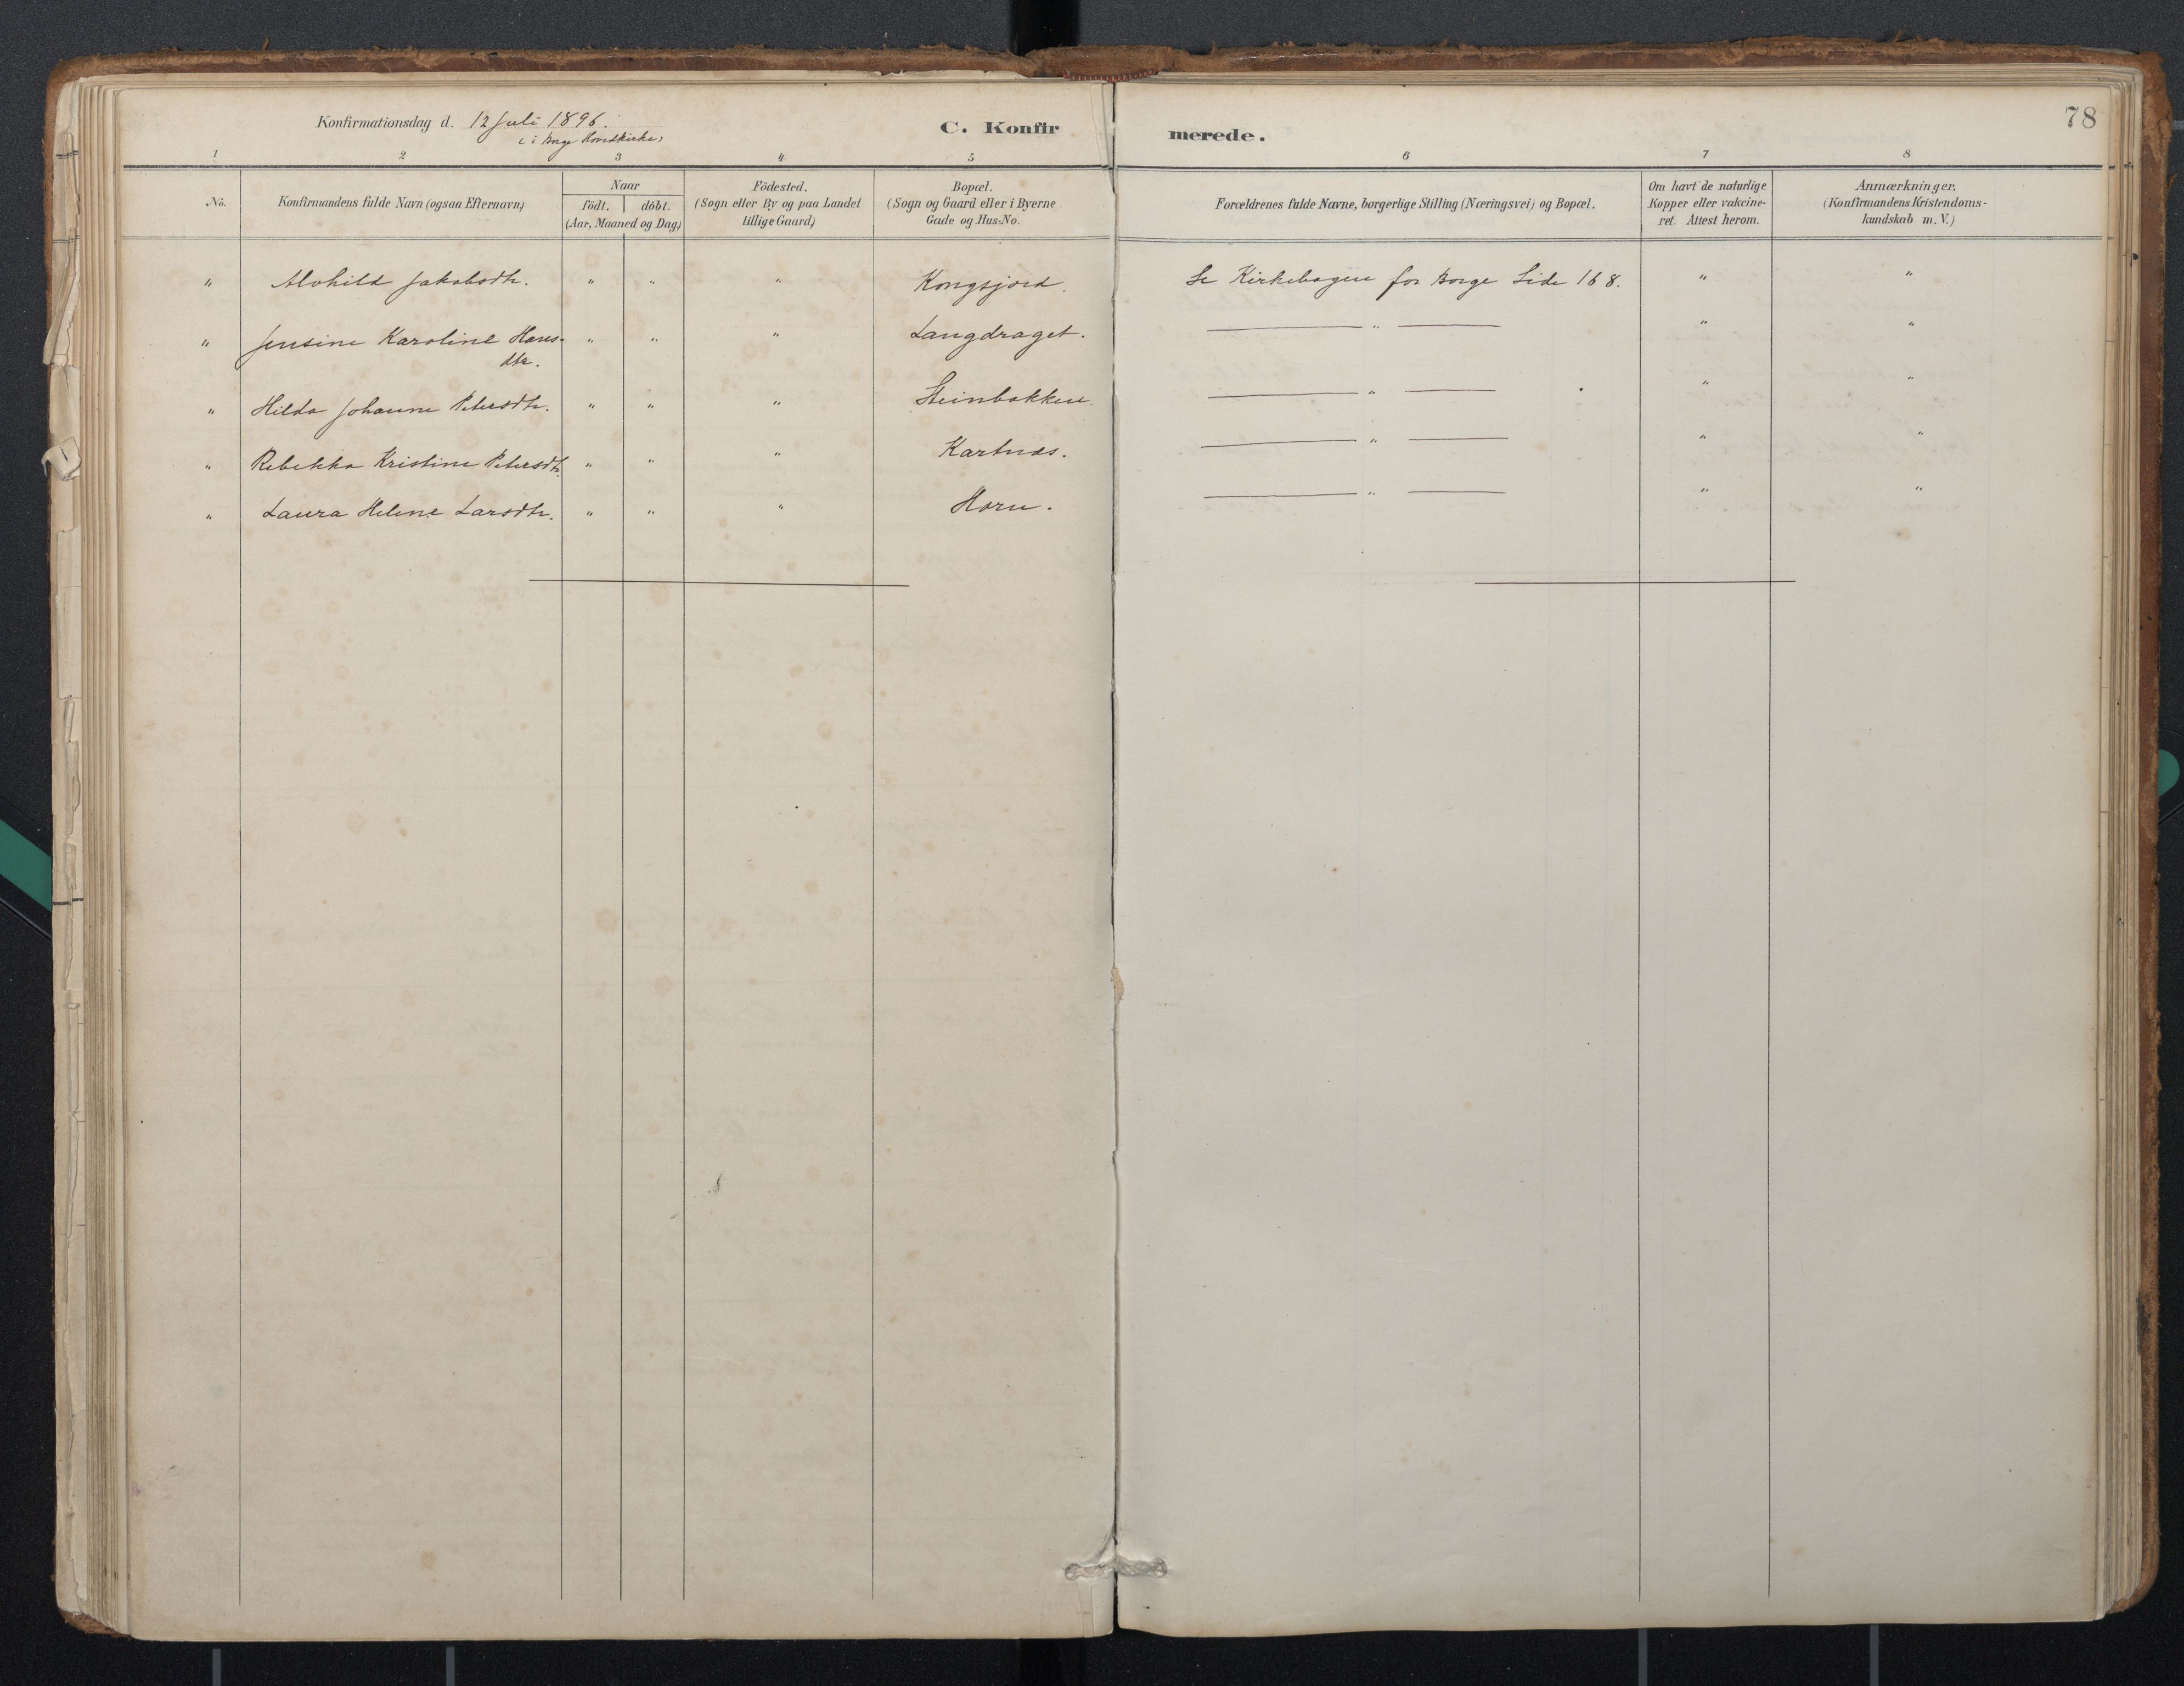 78
Konfirmationsdag d. 12 Juli 1896.
(i Borge Hovedkirke)
C. Konfirmerede.
1 2 3 4 5 6 7 8
No.
Konfirmandens fulde Navn (ogsaa Efternavn)
Naar
födt. döbt.
(Aar, Maaned og Dag)
Födested.
(Sogn eller By og paa Landet
tillige Gaard)
Bopæl.
(Sogn og Gaard eller i Byerne
Gade og Hus-No.
Forældrenes fulde Navne, borgerlige Stilling (Næringsvei) og Bopæl.
Om havt de naturlige
Kopper eller vakcine-
ret. Attest herom.
Anmærkninger,
(Konfirmandens Kristendoms-
kundskab m. V.)
" Alvhild Jakobsdtr. " " " Kongsjord. Se Kirkebogen for Borge Side 168. " "
" Jensine Karoline Hans-
dtr. " " " Langdraget. — " — " "
" Hilda Johanne Petersdtr. " " " Steinbakken. — " — " "
" Rebekka Kristine Petersdtr. " " " Kartnes. — " — " "
" Laura Helene Larsdtr. " " " Horn. — " — " "